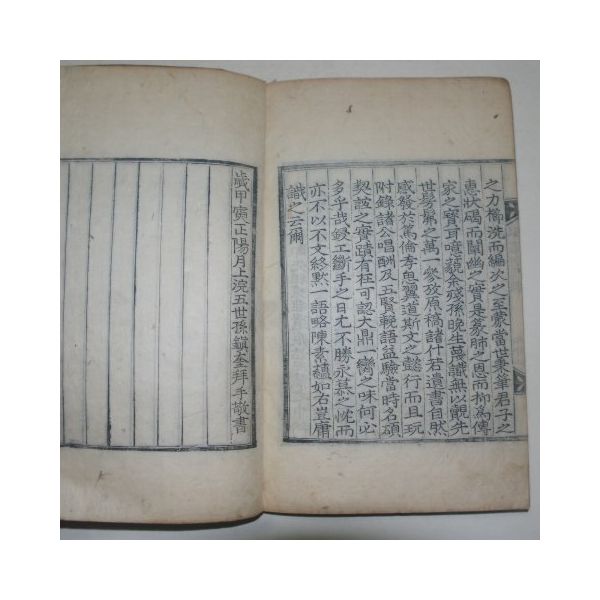 之力櫛洗而編次之至蒙當世秉筆君子之
惠狀碣而闡幽之實是篆肺之恩而抑爲傳
家之寶耳噫藐余殘孫晩生蔑識無以覶先
世髣髴之萬一參攷原稿諸什若遺書自然
感發於篤倫孝思翼道斯文之懿行而且玩
附錄諸公唱酬及五賢輓語益驗當時名碩
契誼之實蹟有枉可認大鼎一臠之味何必
多乎哉錄工斷手之日尤不勝永慕之忱而
亦不以不文終默一語略陳素蘊如右豈庸
識之云爾
歲甲寅正陽月上浣五世孫鎭奎拜手敬書